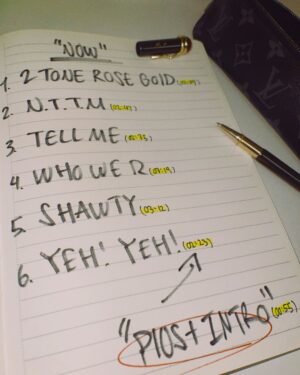 "NOW"
1. 2 TONE ROSE GOLD
2. N.T.T.M
3. TELL ME (02:35)
4. WHO WE R
5. SHAWTY (03:12)
6. YEH! YEH! (02:23)
"PIOST INTRO" (00:55)